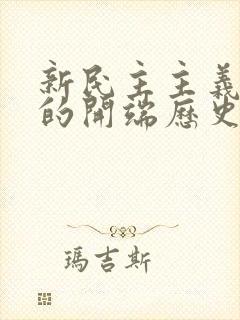 新民主主義
的開端歷史
瑪吉斯